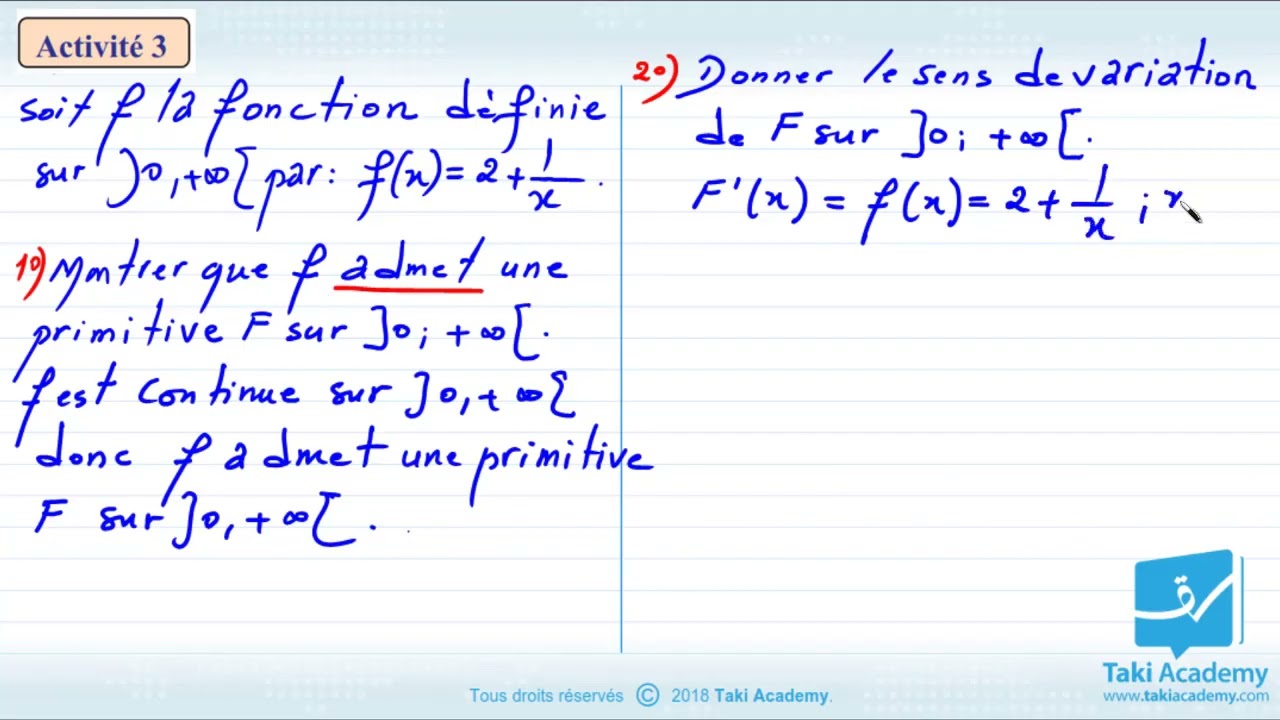 Activité 3
soit f la fonction définie
sur ]0,+∞[ par: f(x)= 2+1/x.
1°) Montrer que f admet une
primitive F sur ]0; +∞[.
f est continue sur ]0,+∞[
donc f admet une primitive
F sur ]0,+∞[.
2°) Donner le sens de variation
de F sur ]0; +∞[.
F'(x) = f(x)= 2+1/x ; x
Taki Academy
www.takiacademy.com
Tous droits réservés © 2018 Taki Academy.